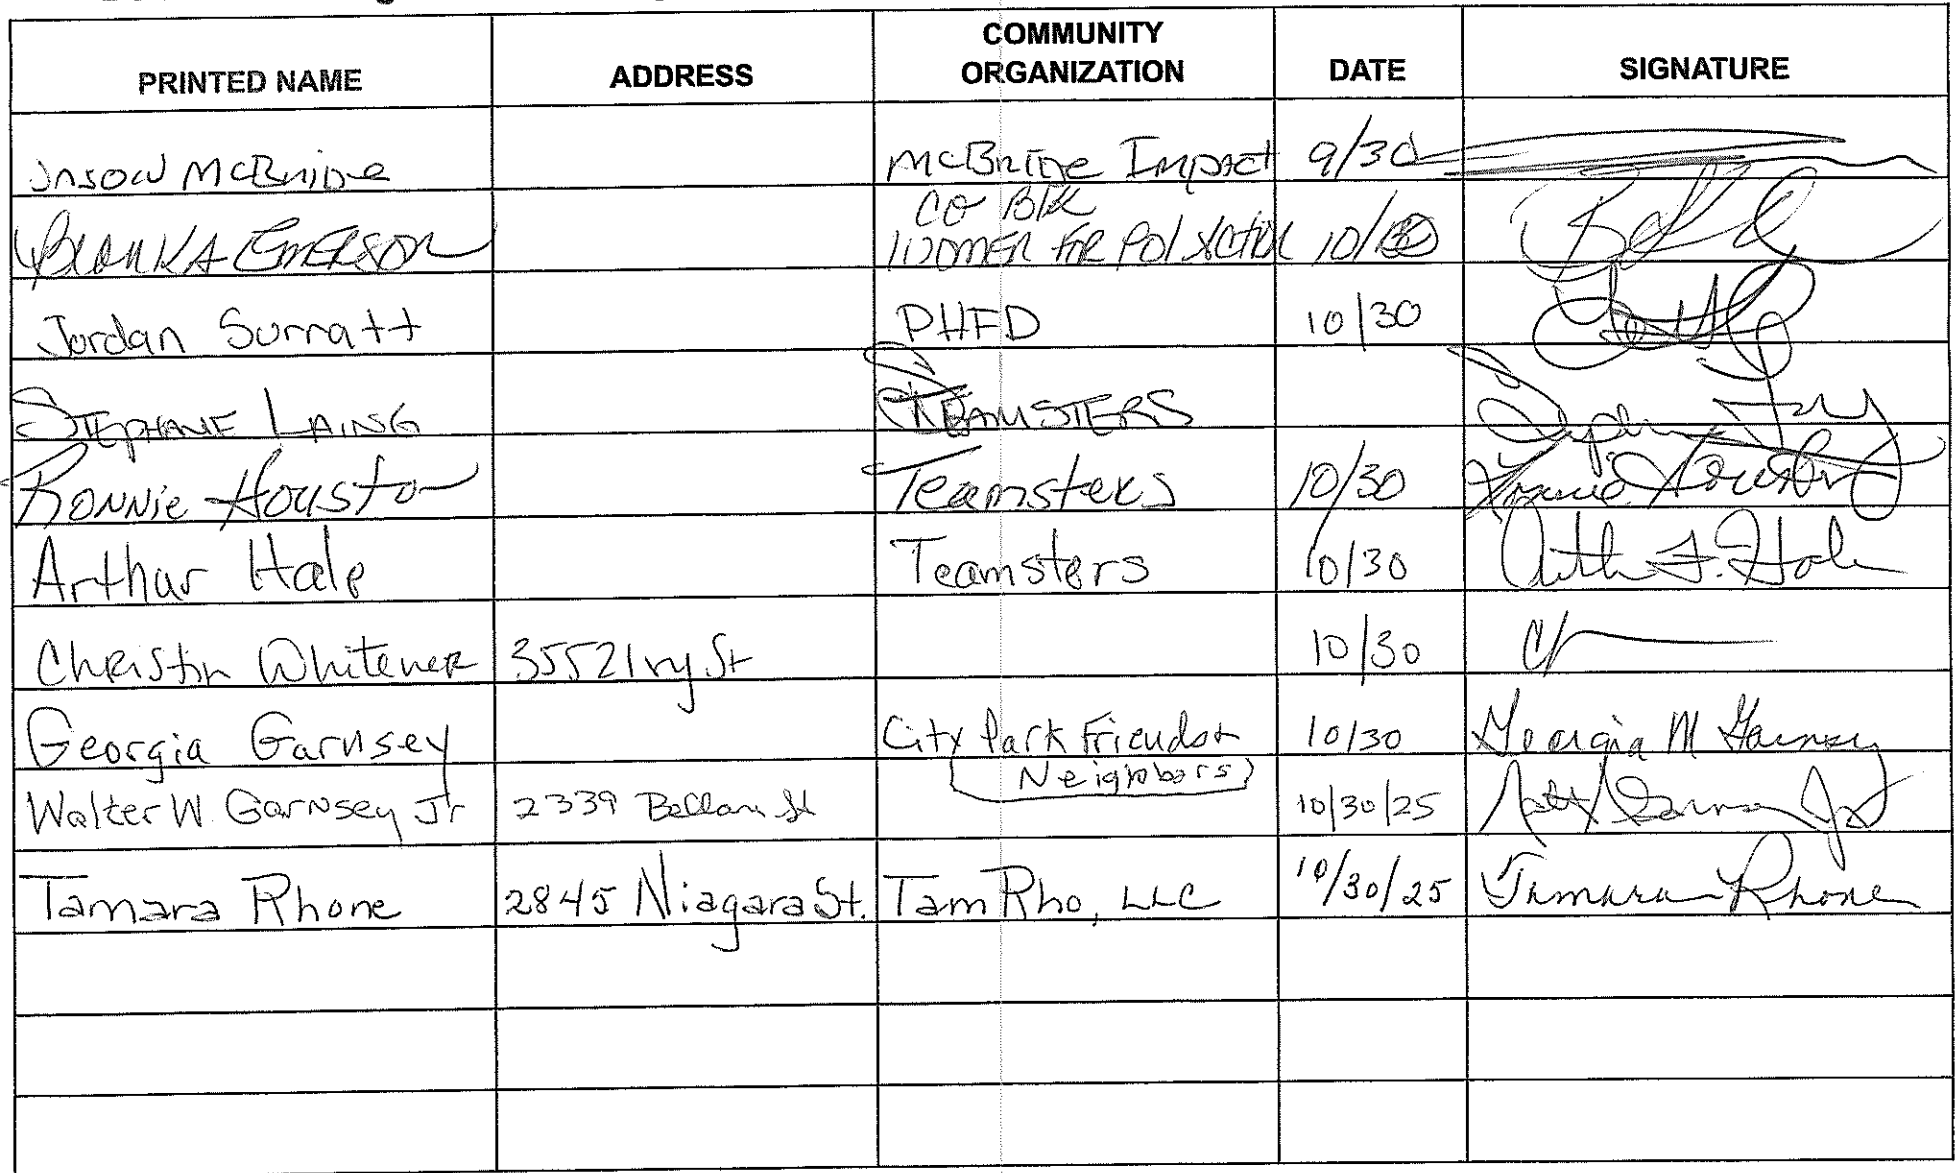 PRINTED NAME ADDRESS COMMUNITY ORGANIZATION DATE SIGNATURE
Jason McBride McBride Impact 9/30
CO Blk
Bianka Emerson Women for Pol Action 10/30
Jordan Surratt PHFD 10/30
Stephanie Laing Teamsters
Ronnie Houston Teamsters 10/30 Ronnie Houston
Arthur Hale Teamsters 10/30 Arth F. Hale
Christin Whitener 3552 Ivy St 10/30
Georgia Garnsey City Park Friends + 10/30 Georgia M Garnsey
Neighbors
Walter W. Garnsey Jr 2339 St 10/30/25
Tamara Rhone 2845 Niagara St. Tam Rho, LLC 10/30/25 Tamara Rhone